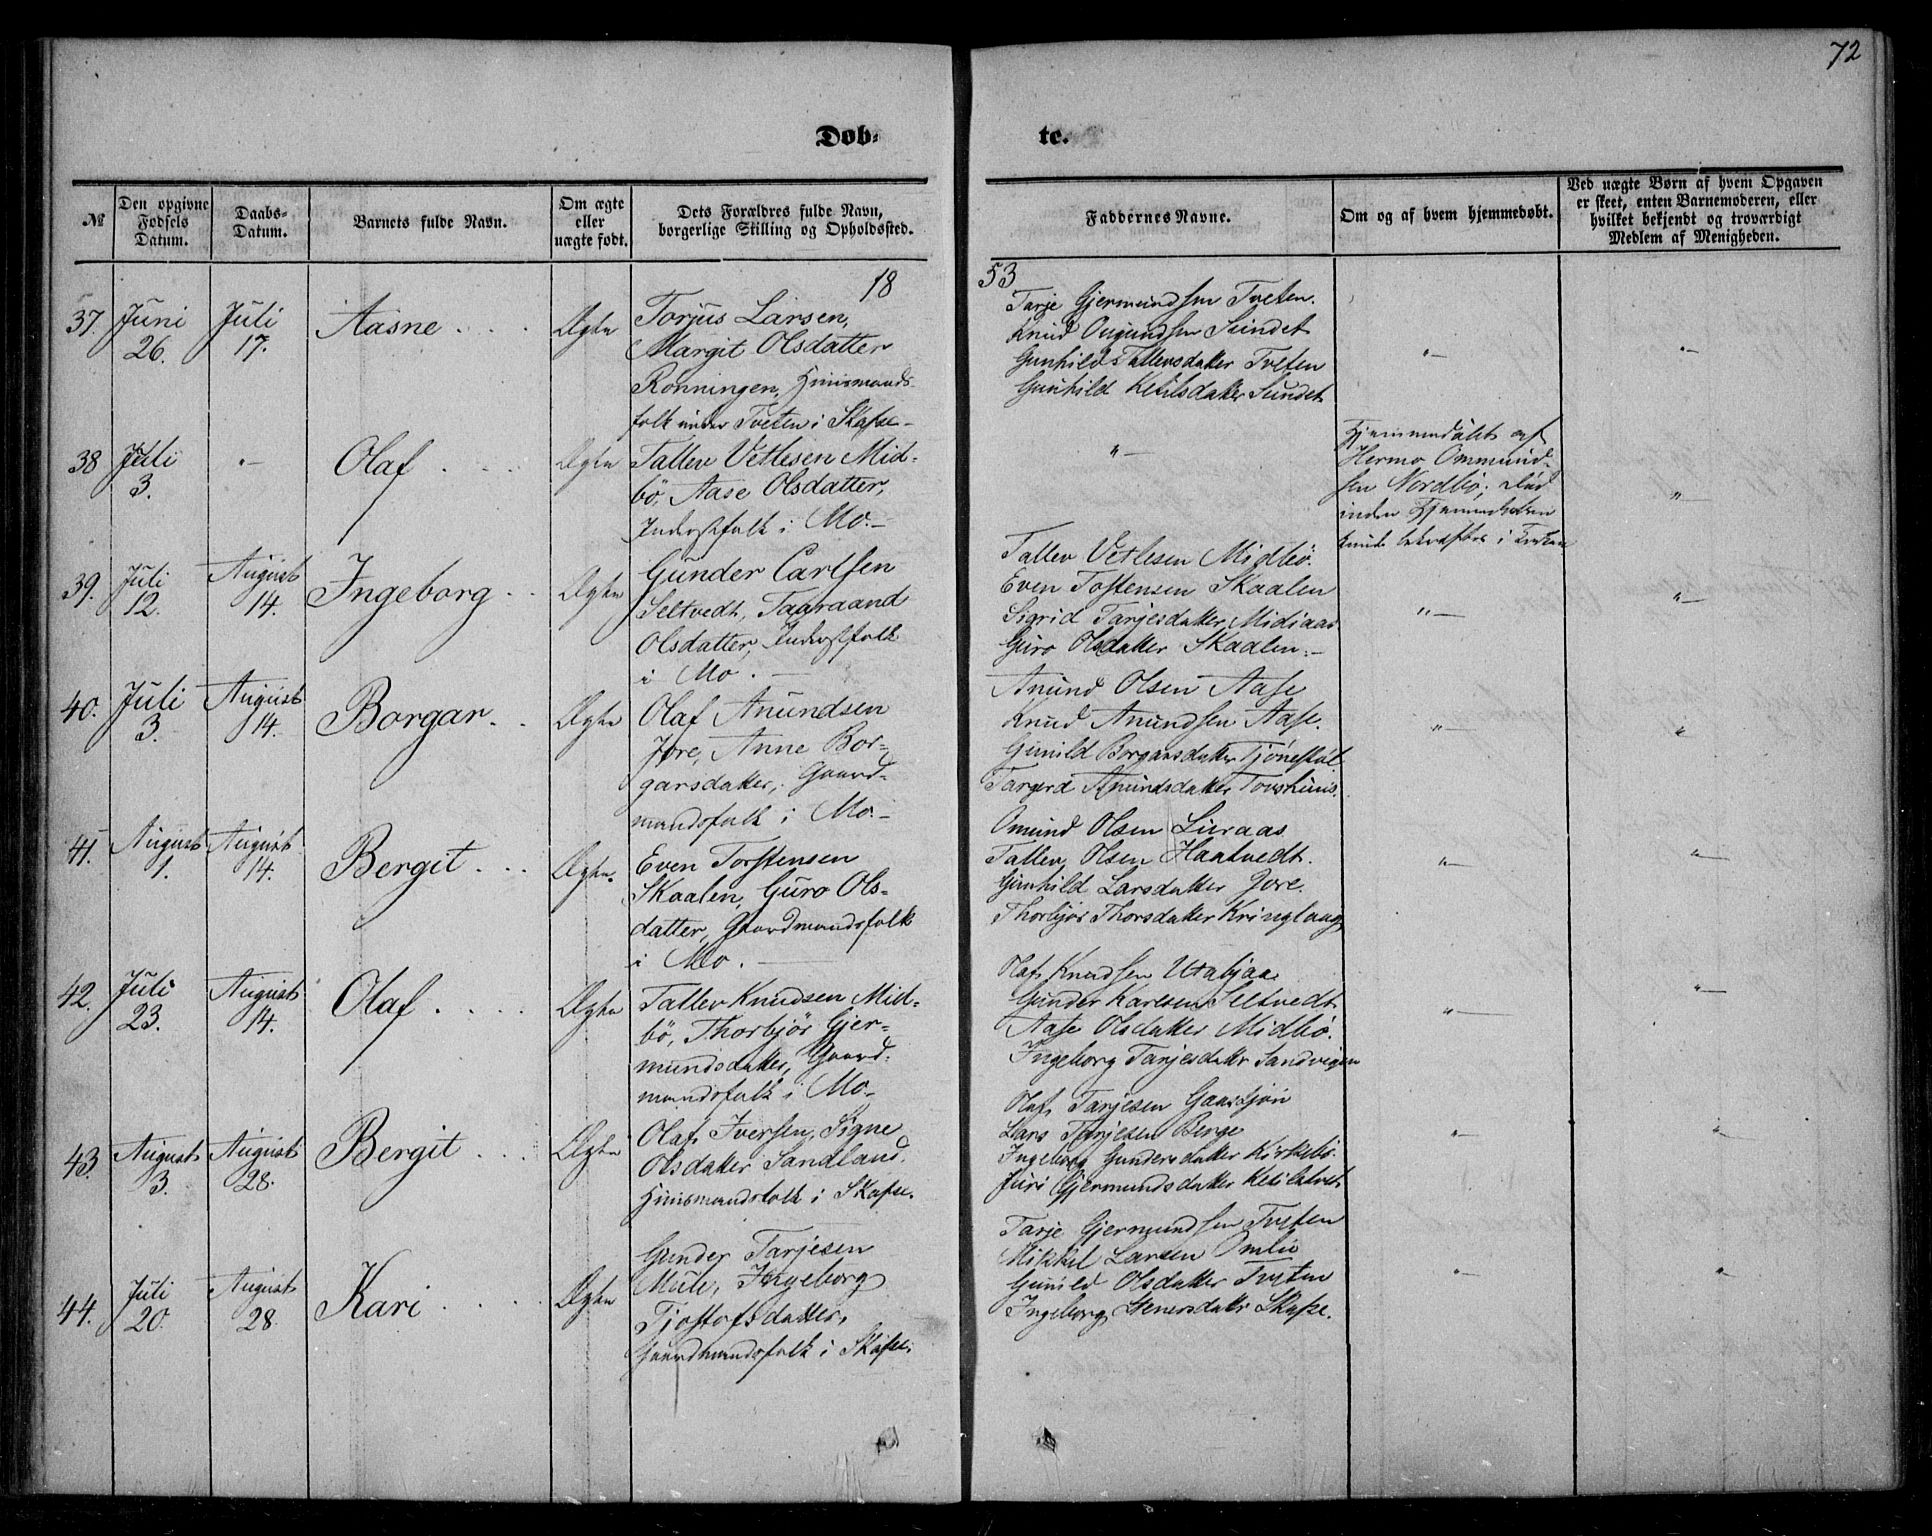 72
Døb-
te.
№
Den opgivne
Fødsels
Datum.
Daabs-
Datum.
Barnets fulde Navn.
Om ægte
eller
uægte født.
Dets Forældres fulde Navn,
borgerlige Stilling og Opholdssted.
Faddernes Navne.
Om og af hvem hjemmedøbt.
Ved uægte Børn af hvem Opgaven
er skeet, enten Barnemoderen, eller
hvilket bekjendt og troværdigt
Medlem af Menigheden.
18
53
37. Juni
26.
Juli
17.
Aasne
Ægte
Torjus Larsen,
Margit Olsdatter
Rønningen, Huusmands-
folk under Tveten i Skafse
Tarje Gjermundsen Tveten.
Knud Sundet
Gunhild Tallevsdatter Tveten
Gunhild Ketilsdatter Sundet
"—
"—
38 Juli
3.
"—
Olaf
Ægte
Tallev Vetlesen Mid-
bö, Aase Olsdatter,
Inderstfolk i Mo.—
"—
Hjemmedøbt af
Hermo Ommund-
sen Nordbö; død
inden Hjemmedaaben
kunde bekræftes i Kirken
"—
39. Juli
12.
August
14.
Ingeborg
Ægte
Gunder Carlsen
Seltvedt, Taaraand
Olsdatter, Inderstfolk
i Mo.
Tallev Vetlesen Midbö.
Even Tostensen Skaalen
Sigrid Tarjesdatter Midjaas
Guro Olsdatter Skaalen.—
"—
"—
40. Juli
3.
August
14.
Borgar
Ægte
Olaf Anundsen
Jore, Anne Bor-
garsdatter, Gaard-
mandsfolk i Mo.—
Anund Olsen Aase
Knud Anundsen Aase.
Gunild Borgarsdatter Tjönestöl
Targerd Anundsdatter
"—
"
41. August
1.
August
14.
Bergit
Ægte.
Even Torstensen
Skaalen, Guro Ols-
datter, Gaardmandsfolk
i Mo.
Omund Olsen Luraas
Tallev Olsen Haatvedt.
Gunhild Larsdatter Jore.
Thorbjør Thorsdatter Kringlaug
"—
"—
42. Juli
23.
August
14.
Olaf
Ægte
Tallev Knudsen Mid-
bö, Thorbjör Gjer-
mundsdatter, Gaard-
mandsfolk i Mo.
Olaf Knudsen Utabjaa
Gunder Karlsen Seltvedt
Aase Olsdatter Midbö.
Ingeborg Tarjesdatter Sandvigen
"—
"—
43. August
3.
August
28.
Bergit
Ægte
Olaf Iversen, Signe
Olsdatter Sandland.
Huusmandsfolk i Skafse.
Olaf Tarjesen Gaastjön
Lars Tarjesen Berge
Ingeborg Gundersdatter Kirkebö.
Juri Gjermundsdatter Ketilstvet
"—
"—
44. Juli
20.
August
28.
Kari
Ægte
Gunder Tarjesen
Mule, Ingeborg
Tjostofsdatter,
Gaardmandsfolk i Skafse.
Tarje Gjermundsen Tveten
Mikkel Larsen Omlie
Gunild Olsdatter Tveten
Ingeborg Stenersdatter Skafse.
"—
"